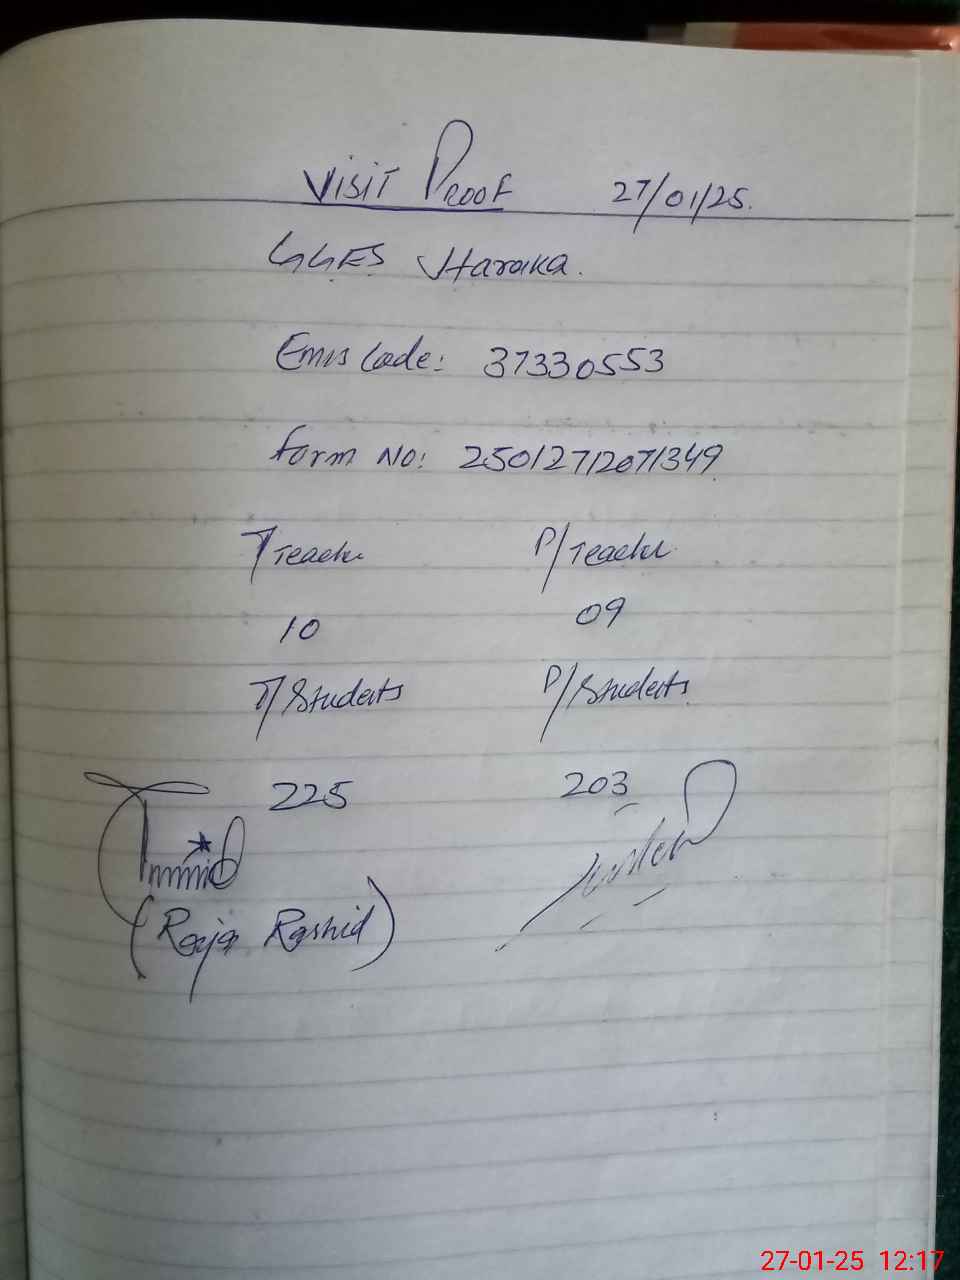 Visit Proof 27/01/25.
GGES Haraka.
Emis Code: 37330553
Form No: 25012712071349
T/Teacher P/Teacher
10 09
T/Students P/Students
225 203
(Raja Rashid)
27-01-25 12:17